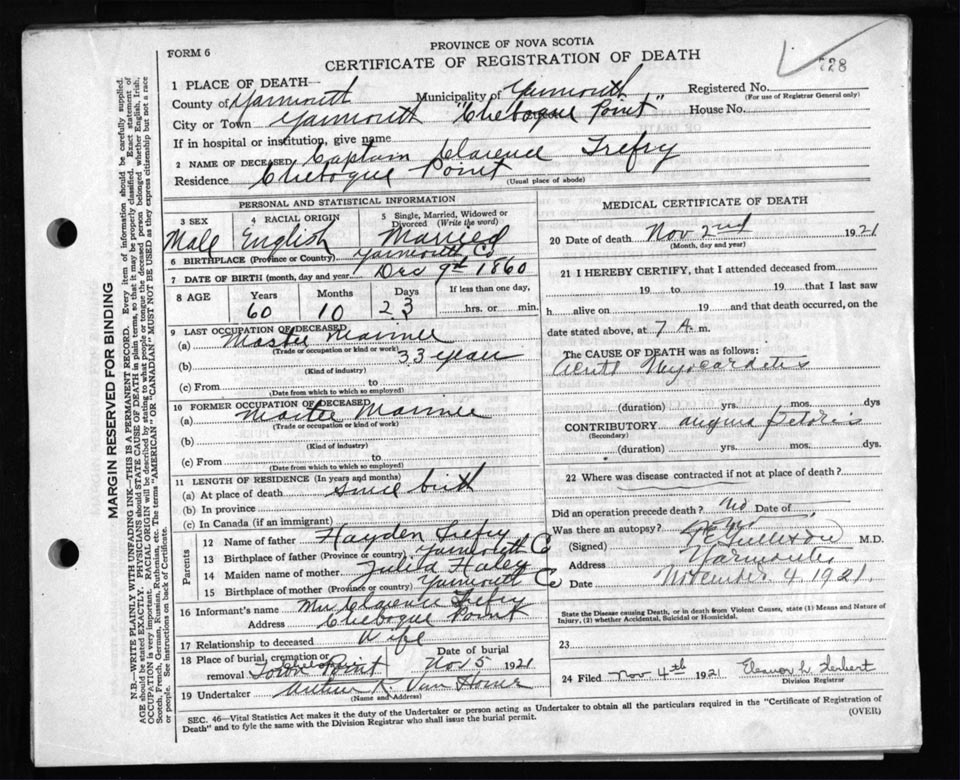 FORM 6
PROVINCE OF NOVA SCOTIA
CERTIFICATE OF REGISTRATION OF DEATH
728
1 PLACE OF DEATH—
County of Yarmouth Municipality of Yarmouth Registered No.
(For use of Registrar General only)
City or Town Yarmouth "Chebogue Point" House No.
If in hospital or institution, give name
2 NAME OF DECEASED Captain Clarence Trefry
Residence Chebogue Point
(Usual place of abode)
PERSONAL AND STATISTICAL INFORMATION
3 SEX 4 RACIAL ORIGIN 5 Single, Married, Widowed or Divorced (Write the word)
Male English Married
6 BIRTHPLACE (Province or Country) Yarmouth Co
7 DATE OF BIRTH (month, day and year) Dec 9th 1860
8 AGE Years Months Days If less than one day,
60 10 23 hrs. or min.
9 LAST OCCUPATION OF DECEASED
(a) Master Mariner
(Trade or occupation or kind or work)
(b) 33 years
(Kind of industry)
(c) From to
(Date from which to which so employed)
10 FORMER OCCUPATION OF DECEASED
(a) Master Mariner
(Trade or occupation or kind or work)
(b)
(Kind of industry)
(c) From to
(Date from which to which so employed)
11 LENGTH OF RESIDENCE (In years and months)
(a) At place of death Since birth
(b) In province
(c) In Canada (if an immigrant)
Parents
12 Name of father Hayden Trefry
13 Birthplace of father (Province or country) Yarmouth Co
14 Maiden name of mother Julia Haley
15 Birthplace of mother (Province or country) Yarmouth Co
16 Informant's name Mrs Clarence Trefry
Address Chebogue Point
17 Relationship to deceased Wife
18 Place of burial, cremation or removal Town Point Chebogue Date of burial Nov 5 1921
19 Undertaker Arthur K. Van Horne
(Name and Address)
MEDICAL CERTIFICATE OF DEATH
20 Date of death Nov 2nd 1921
(Month, day and year)
21 I HEREBY CERTIFY, that I attended deceased from
19 to 19 that I last saw
h alive on 19 and that death occurred, on
date stated above, at 7 A. m.
The CAUSE OF DEATH was as follows:
Acute Myocarditis
(duration) yrs. mos. dys
CONTRIBUTORY angina pectoris
(Secondary)
(duration) yrs. mos. dys.
22 Where was disease contracted if not at place of death?
Did an operation precede death? No Date of
Was there an autopsy? No
(Signed) M.D.
Address Yarmouth
Date November 4, 1921.
State the Disease causing Death, or in death from Violent Causes, state (1) Means and Nature of
Injury, (2) whether Accidental, Suicidal or Homicidal.
23
24 Filed Nov 4th 1921 Eleanor L.
Division Registrar
SEC. 46—Vital Statistics Act makes it the duty of the Undertaker or person acting as Undertaker to obtain all the particulars required in the "Certificate of Registration of
Death" and to fyle the same with the Division Registrar who shall issue the burial permit. (OVER)
MARGIN RESERVED FOR BINDING
N.B.—WRITE PLAINLY WITH UNFADING INK—THIS IS A PERMANENT RECORD. Every item of information should be carefully supplied.
AGE should be stated EXACTLY. PHYSICIANS should STATE CAUSE OF DEATH in plain terms, so that it may be properly classified. Exact statement of
OCCUPATION is very important. RACIAL ORIGIN will be described by stating to what people or tongue the deceased person belonged whether English, Irish,
Scotch, French, German, Russian, Ruthenian, etc. The terms "AMERICAN" OR "CANADIAN" MUST NOT BE USED as they express citizenship but not a race
or people. See instructions on back of Certificate.